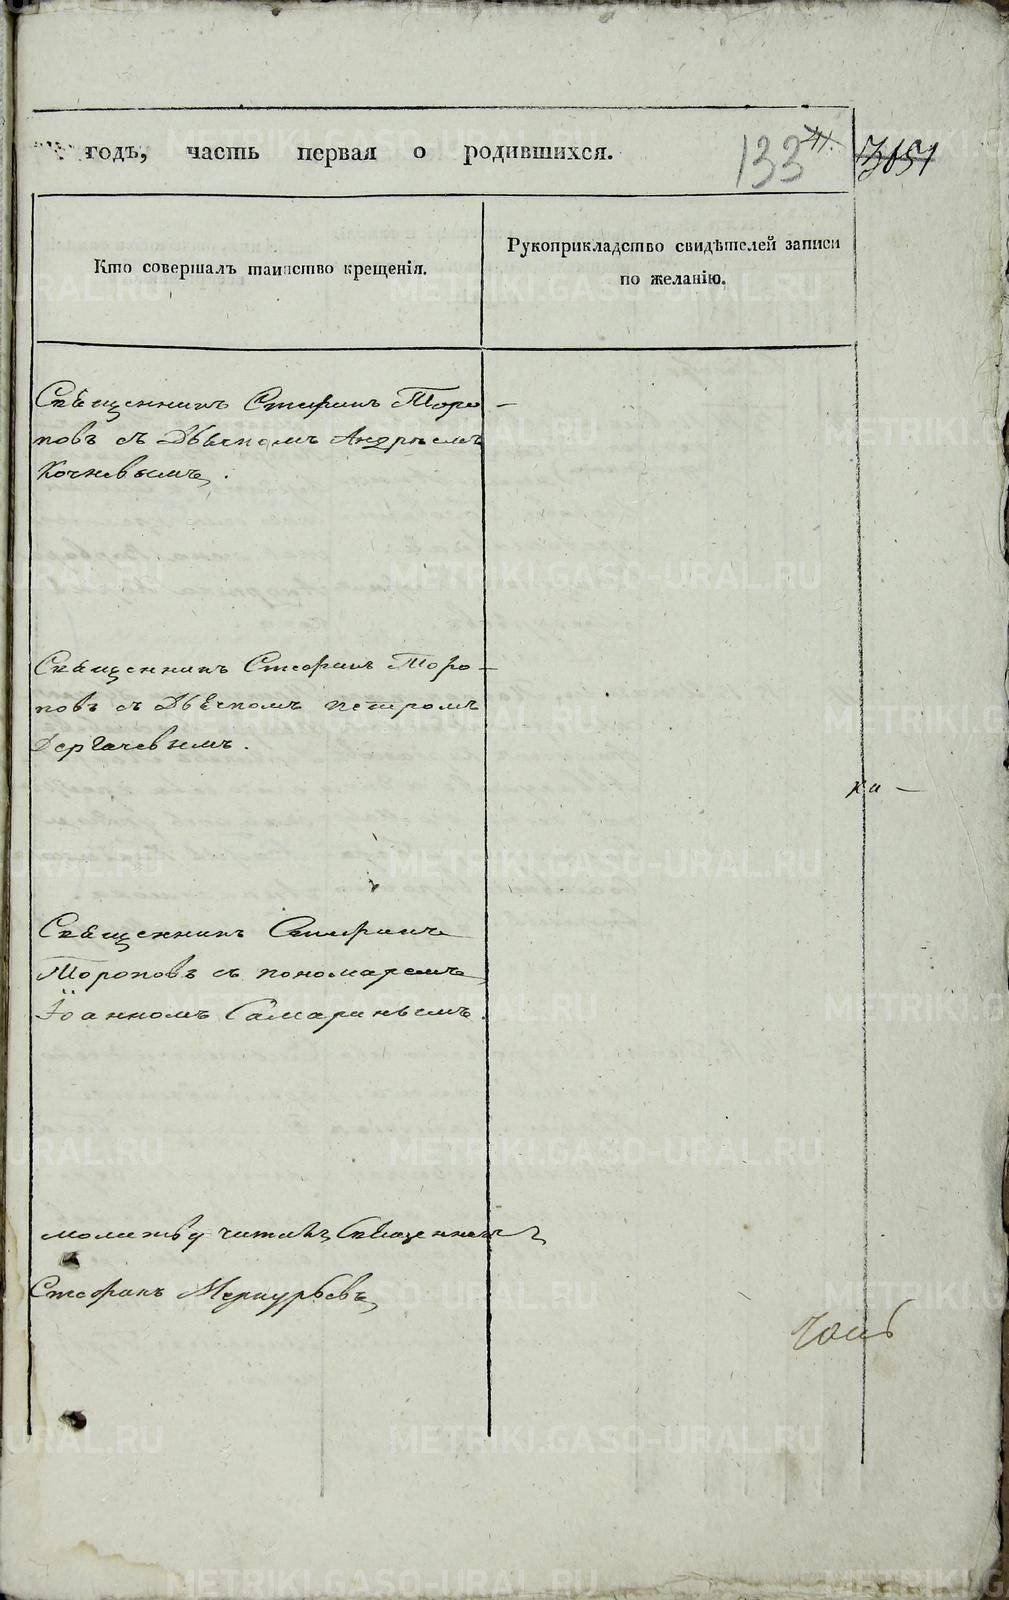 годъ, часть первая о родившихся.
133
Кто совершалъ таинство крещенія.
Рукоприкладство свидѣтелей записи
по желанію.
Священникъ Стефанъ Торо-
повъ съ Дьячкомъ Андреемъ
Кочневымъ.
Священникъ Стефанъ Торо-
повъ съ Дьячкомъ Петромъ
Дергачевымъ.
ка-
Священникъ Стефанъ
Тороповъ съ пономаремъ
Іоанномъ Самаринымъ.
молитву читалъ Священникъ
Стефанъ Меркурьевъ
METRIKI.GASO-URAL.RU